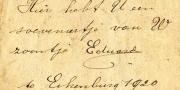 Hier hebt U een
souveniertje van Uw
zoontje Eduard
to Erkenburg 1920